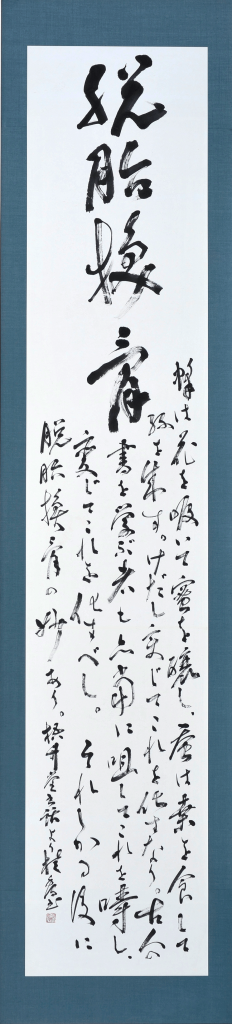 脱胎換骨
蜂は花を吸いて蜜を醸し、蚕は葉を食して
絲を成す。けだし変じてこれを化すなり。古今
書を学ぶ者も亦当に咀してこれを嚼し、
変じてこれを化すべし。それしかる後に
脱胎換骨の妙あり。梧竹堂書話より